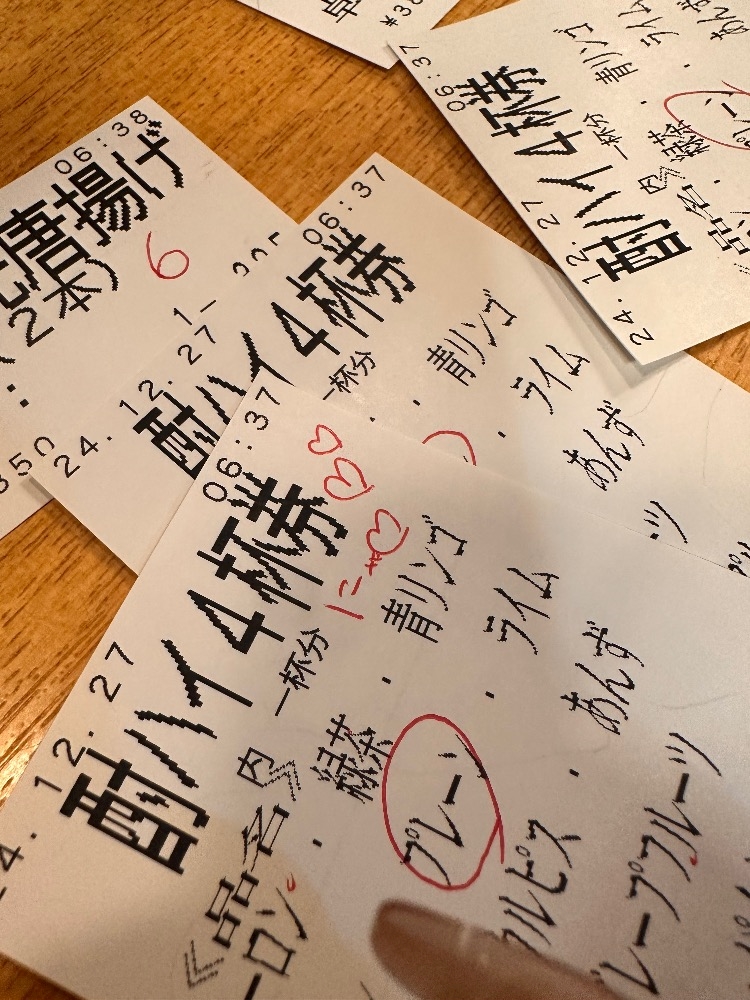 ¥38
06:38
唐揚げ
(2本)
6
350
06:37
酎ハイ4杯券
24.12.27
一杯分
・青リンゴ
・ライム
あんず
緑茶
品名
内》
06:37
酎ハイ4杯券
24.12.27
一杯分
・青リンゴ
・ライム
あんず
ツ
06:37
酎ハイ4杯券
4.12.27
一杯分
にゃ
《品名 内》
ーロン・緑茶・青リンゴ
プレーン・ライム
ルピス・あんず
レープフルーツ